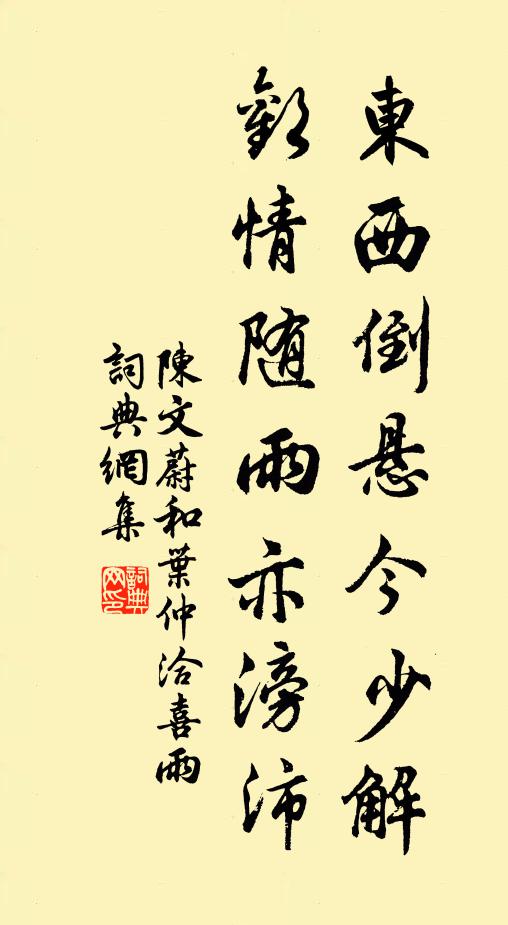 東西倒悬今少解
歡情随雨亦滂沛
陳文蔚和葉仲洽喜雨
詞典網集
詞典网印